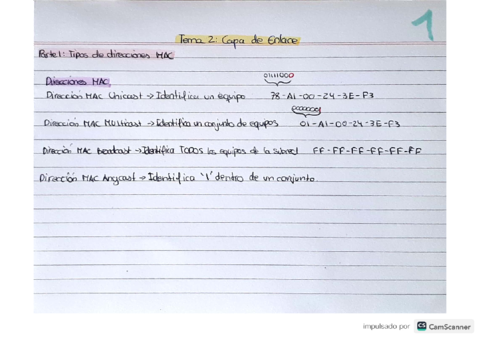 1
Tema 2: Capa de Enlace
Parte 1: Tipos de direcciones MAC
Direcciones MAC
01111000
Dirección MAC Unicast → Identifica un equipo 78-A1-00-24-3E-F3
00000001
Dirección MAC Multicast → Identifica un conjunto de equipos 01-A1-00-24-3E-F3
Dirección MAC Broadcast → Identifica TODOS los equipos de la subred FF-FF-FF-FF-FF-FF
Dirección MAC Anycast → Identifica "1" dentro de un conjunto.
impulsado por CS CamScanner